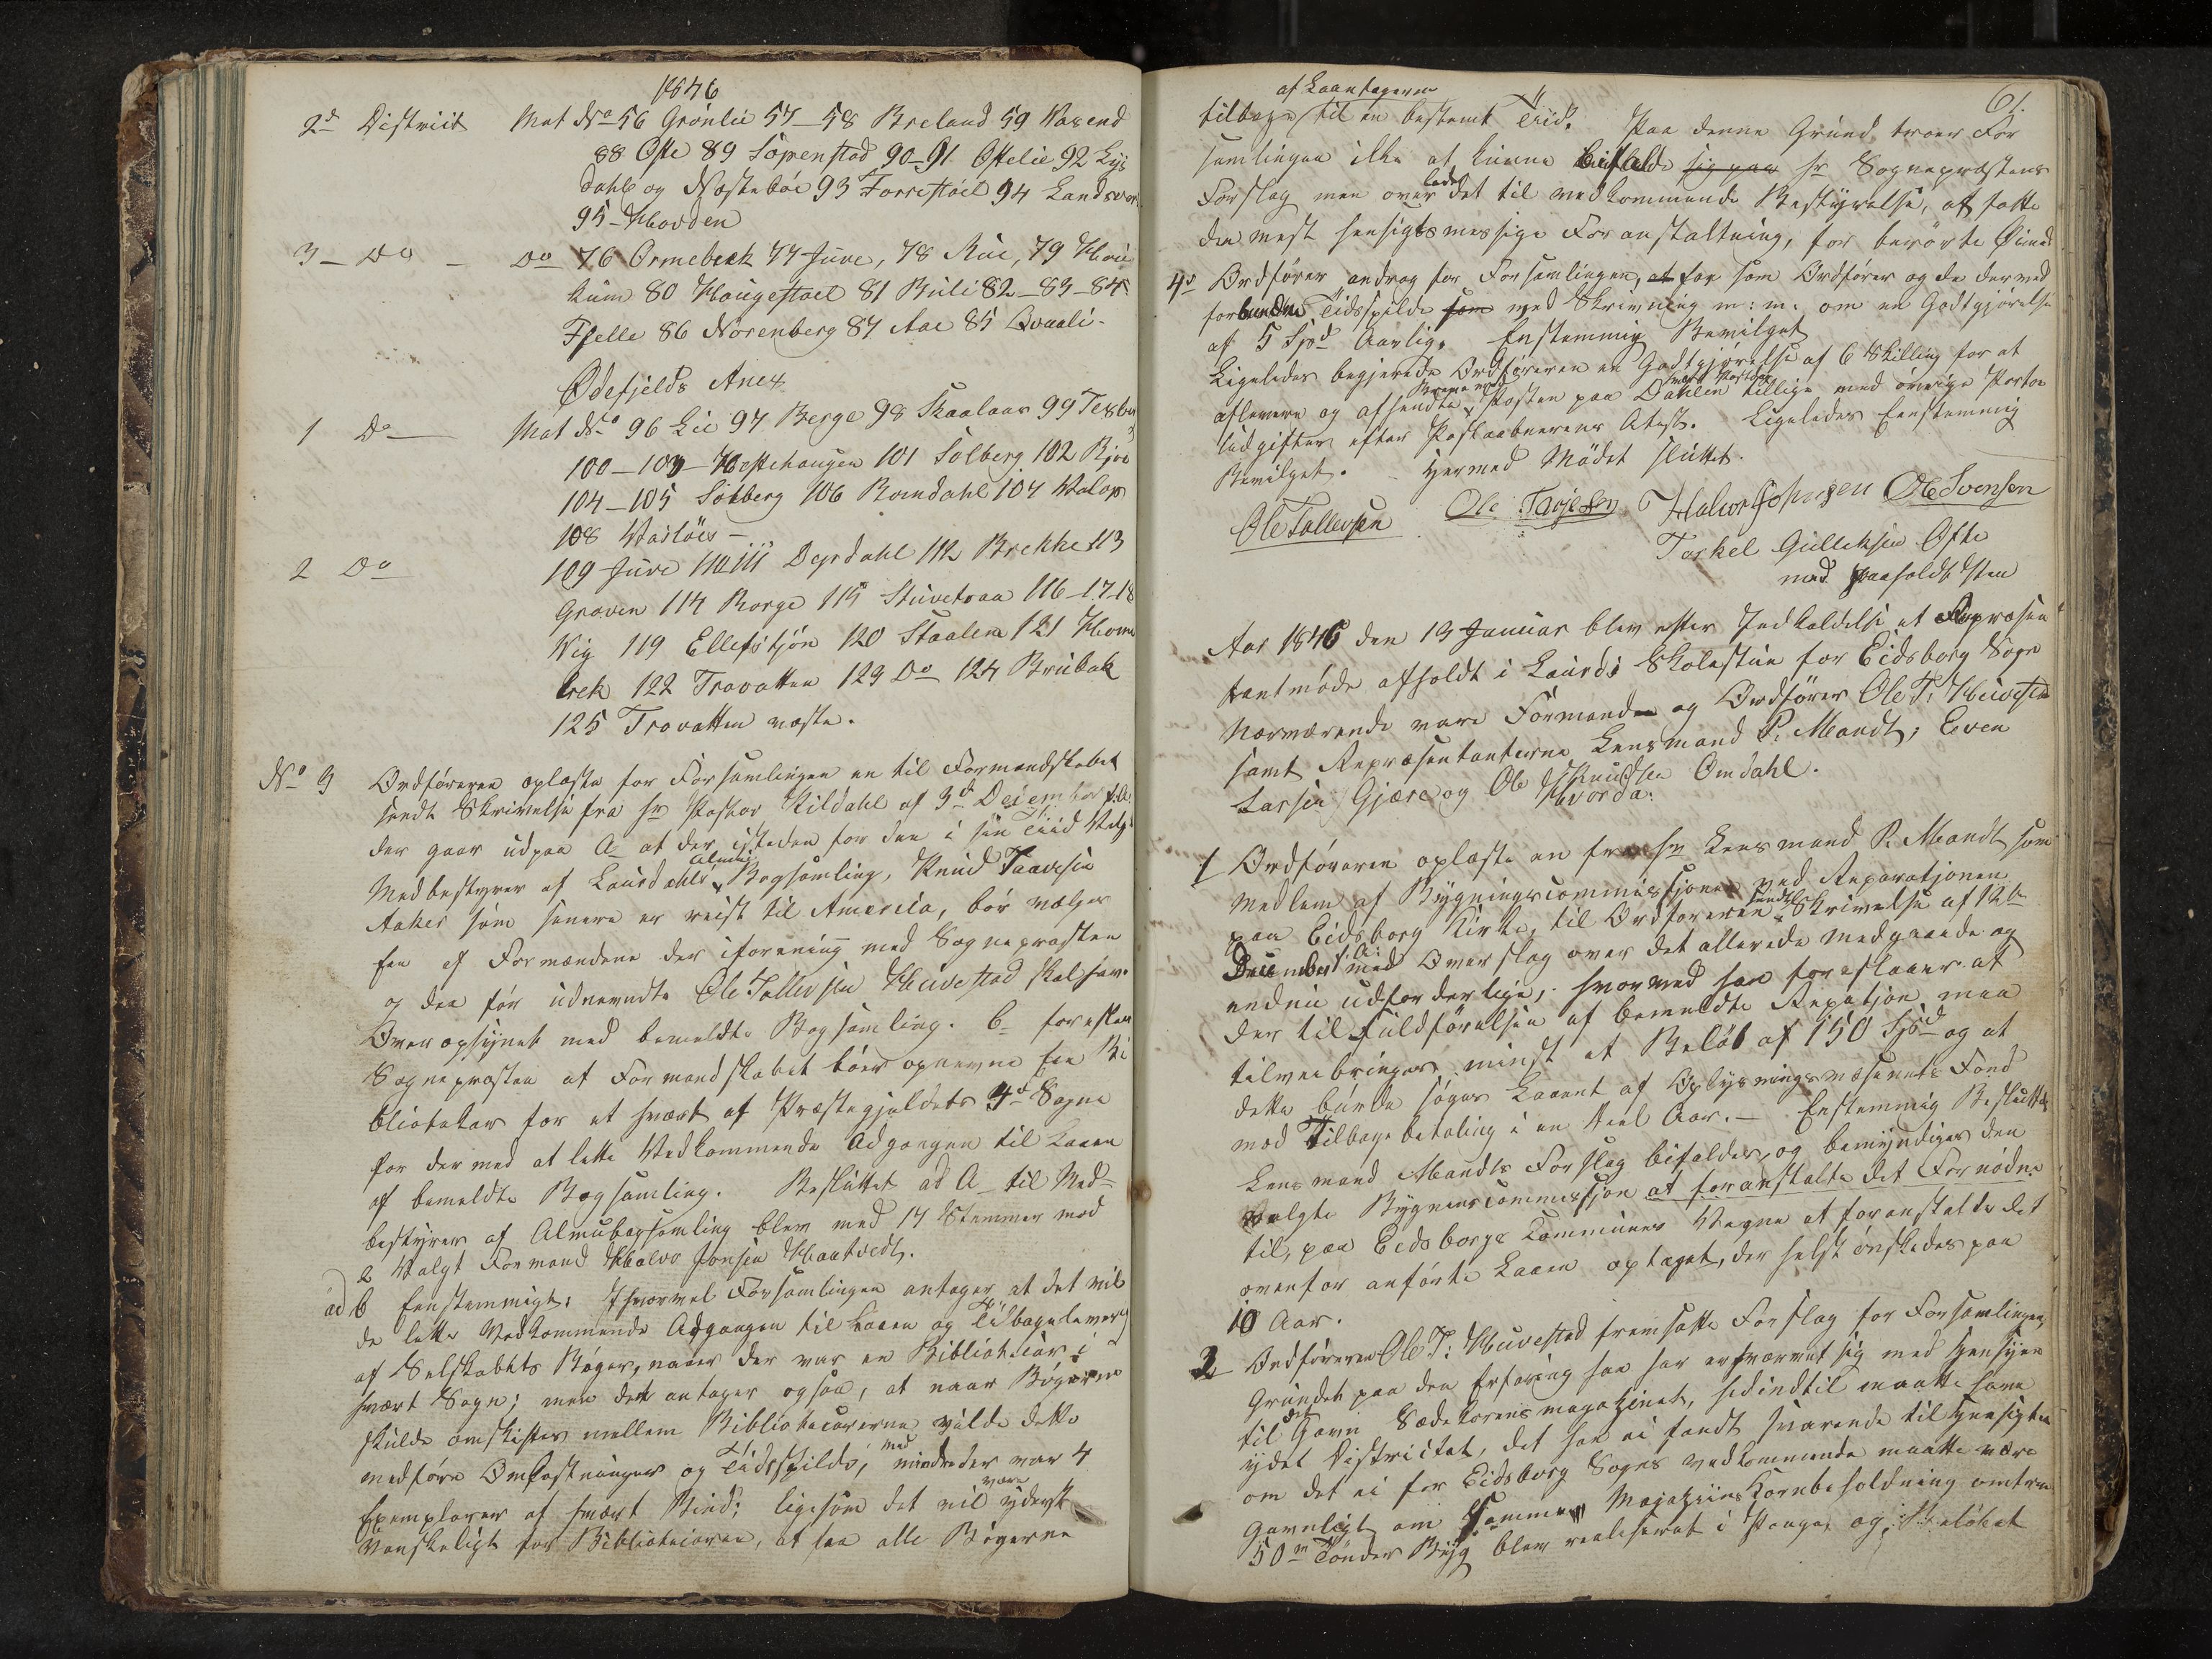 1846
2d District Mat No 56 Grönlie 57-58 Breland 59 Vaxend
88 Ofte 89 Sopenstad 90-91 Oftelie 92 Lÿs
dahl og Næsteböe 93 Forrestöil 94 Landsver
95 - Hovden
3 - Do - Do 76 Ormebrek 77 Juve, 78 Rui, 79 Hovi
kum 80 Haugestoel 81 Buli 82-83-84
Fjelle 86 Norenberg 87 Aae 85 Qvaali -
Ødefjelds Anex
1 Do - Mat No 96 Lie 97 Berge 98 Skaalaar 99
100 - 103 - Westehaugen 101 Solberg 102
104 - 105 Solberg 106 Romdahl 107
108 Vaslöes -
2 Do 109 Juve 110 111 Dejrdahl 112 Brekke 113
Graven 114 Borge 115 Stuvetraa 116-17-18
Vig 119 Ellefstjön 120 Staalen 121
brek 122 Trovatten 123 Do 124 Brubak
125 Trovatten næste.
No 3 Ordföreren oplæste for Forsamlingen en til Formandskabet
sendt Skrivelse fra Hr Pastor Kildahl af 3d December f.A.
der gaar udpaa A at der istedenfor den i sin Tiid Valgt
Medbestyrer af Laurdahls Almue Bogsamling, Knud Taavesen
Aaker som senere er reist til America, bör vælges
Een af Formændene der iforening med Sognepræsten
og den för udnævndte Ole Tallevsen Huvestad skal have
Overopsynet med bemeldte Bogsamling. b foreslaar
Sognepræsten at Formandskabet böer opnævne Een Bi
bliotekar for et hvært af Præstegjeldets 4d Sogne
for dermed at lette Vedkommende Adgangen til Laaen
af bemeldte Bogsamling. Besluttet ad A til Med-
bestyrer af Almubogsamling blev med 14 Stemmer mod
2 Valgt Formand Halvor Jonsen Haatvedt.
ad b Eenstemmigt: Ihvorvel Forsamlingen antager at det vil
de lette Vedkommende Adgangen til Laaen og Tilbagelevering
af Selskabets Böger, naaer der var en Bibliotecar i
hvært Sogn; men det antages ogsaa, at naar Bögerne
skulde omskiftes mellem Bibliotecarerne vilde dette
medföre Omkostninger og Tidsspilde, med mindre der var 4
Exemplarer af hvært Bind; ligesom det vil være yderst
Vanskeligt for Bibliotecaren, at faa alle Bögerne
61.
af Laantagerne
tilbage til en bestemt Tiid. Paa denne Grund troer For
samlingen ikke at kunne bifalde sig paa Hr Sognepræstens
Forslag men overlader det til vedkommende Bestyrelse, at fatte
den mest hensigtsmessige Foranstaltning, for berörte Öimed
4d Ordförer androg for Forsamlingen, at han som Ordförer og de dermed
forbundne Tidsspilde som med Skrivning m:m: om en Godtgjörelse
af 5 Spd Aarlig. Enstemmig Bevilget
Ligeledes begjærede Ordföreren en Godtgjörelse af 6 Skilling for at
aflevere og afsendte Posten paa Dahlen tillige med övrige Porto
Udgifter efter Postaabnerens Atest. Ligeledes Eenstemmig
Bevilget. Hermed Mödet sluttet.
Ole Tallevsen Ole Tarjesen Halvor Johnsen Ole Svensen
Torkel Gulleksen Ofte
med paaholdt Pen
Aar 1846 den 13 Januar blev efter Indkaldelse et Repræsen
tantmöde afholdt i Laurds Skolestue for Eidsborg Sogn
Nærværende vare Formand og Ordförer Ole T. Huvestad
samt Repræsentanterne Lensmand P. Mandt, Even
Larsen Gjære og Ole Knudsen Omdahl.
Hvorda:
1 Ordföreren oplæste en fra Hr Lensmand P. Mandt som
Medlem af Bygningscommissjonen ved Reparatjonen
paa Eidsborg Kirke, til Ordföreren sendt Skrivelse af 12te
December f. A. med Overslag over det allerede medgaaede og
endnu udforderlige, hvorved han foreslaaer at
der til fuldförelsen af bemeldte Repatjon maa
tilveiebringes mindst et Belöb af 150 Spd og at
dette burde söges Laaent af Oplysningsvæsenets Fond
mod Tilbagebetaling i en Deel Aar. - Enstemmig Besluttet
Lensmand Mandts Forslag bifaldes, og bemyndiges den
valgte Bygnenscommissjon at foranstalte det Fornödne
til, paa Eidsborgs Communes Vegne at foranstalte det
ovenfor anförte Laaen optaget, der helst önskedes paa
10 Aar.
2 Ordföreren Ole T: Huvestad fremsatte Forslag for Forsamlingen,
Grundet paa den Erfaring han har erhværvet sig med Hensyen
til det Gavn Sædekornsmagazinet, hidindtil maatte have
ydet Districtet, det han ei fandt svarende til Hensigten
om det ei for Eidsborg Sogns vedkommende maatte være
Gavnligt om Sammes Magaziins Kornbeholdning omtren
50m Tönder Byg blev realiseret i Penge, og Belöbet